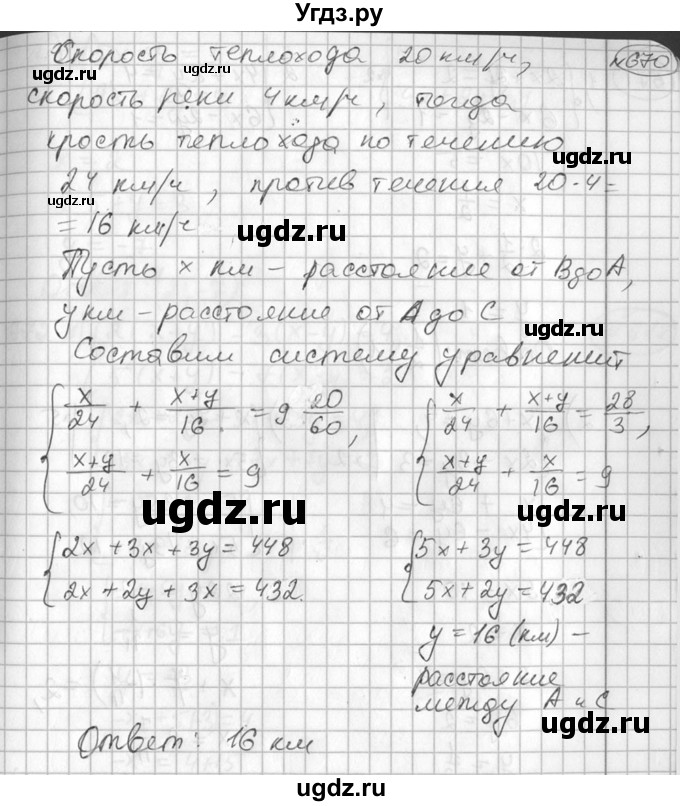 Угдз.ру
Скорость теплохода 20 км/ч, №670
скорость реки 4 км/ч, тогда
крость теплохода по течению
24 км/ч, против течения 20-4=
= 16 км/ч
Пусть x км - расстояние от B до A,
y км - расстояние от A до C
Составим систему уравнений
{ x/24 + (x+y)/16 = 9 20/60, { x/24 + (x+y)/16 = 28/3,
(x+y)/24 + x/16 = 9 (x+y)/24 + x/16 = 9
{ 2x + 3x + 3y = 448 { 5x + 3y = 448
2x + 2y + 3x = 432. 5x + 2y = 432
y = 16 (км) -
расстояние
между A и C
Ответ: 16 км
ugdz.ru
ugdz.ru
ugdz.ru
ugdz.ru
ugdz.ru
ugdz.ru
ugdz.ru
ugdz.ru
ugdz.ru
ugdz.ru
ugdz.ru
ugdz.ru